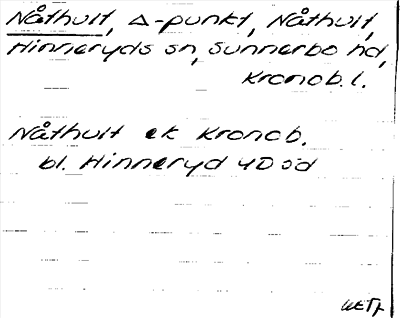 Nåthult, Δ-punkt, Nåthult,
Hinneryds sn, Sunnerbo hd,
Kronob. l.
Nåthult ek Kronob.
bl. Hinneryd 4D sd